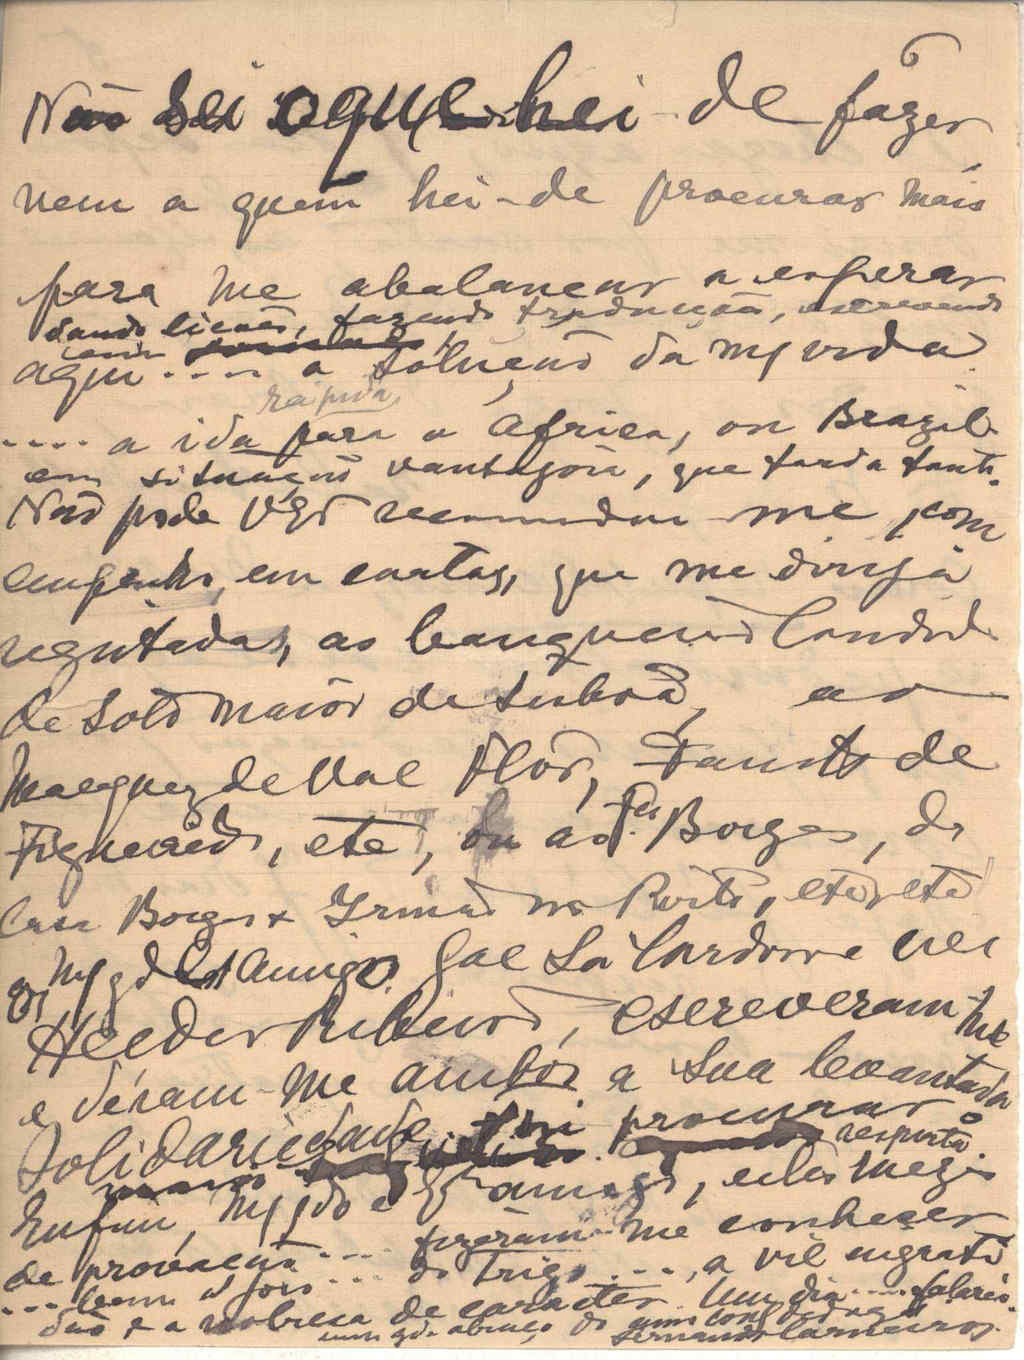 Não sei o que hei-de fazer
nem a quem hei-de procurar mais
para me abalançar a esperar
dando lições, fazendo traducções, escrevendo
aqui .... a solução da m/ vida
rápida
.... a ida para a Africa, ou Brazil
em situação vantajosa, que tarda tanto.
Não pode VExª recommendar-me, com
empenho, em cartas, que me dirija
registadas, ao banqueiro Candido
de Soto Maior de Lisboa, ao
Marquez de Val Flôr, Fausto de
Figueiredo, etc, ou aos Borges, da
Casa Borges & Irmão no Porto, etc, etc
Os m/ gd Est Amigos Gal Sá Cardoso e
Helder Ribeiro, escreveram-me
e déram-me ambos a sua levantada
solidariedade procurar
resposta
Enfim, m/ gdo e amigo, estes mezes
de provação .... fizeram-me conhecer
... bem o joio ... do trigo ...., a vil ingrati
dão e a nobresa de caracter. Um dia .... falarei.
um gde abraço do
Fernando Carneiro